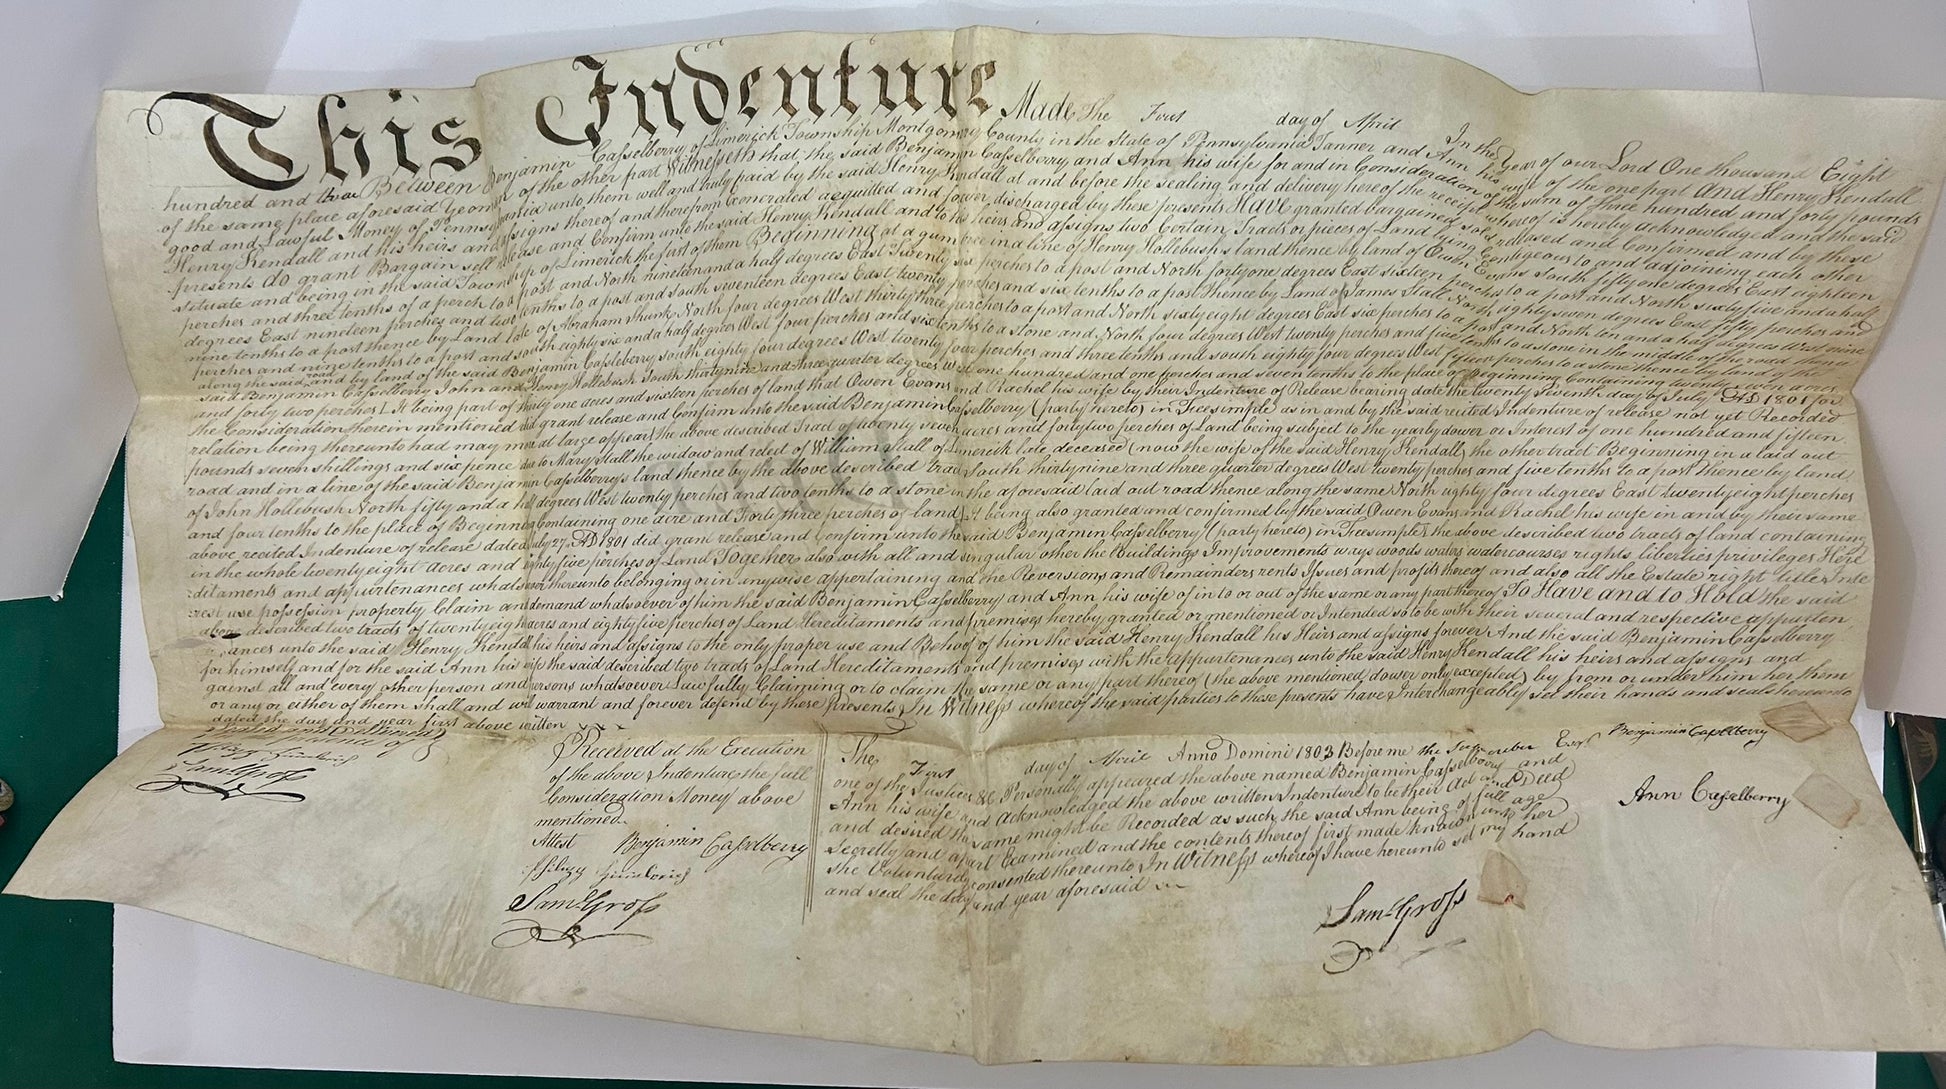 This Indenture Made The First day of April In the Year of our Lord One thousand Eight
hundred and three Between Benjamin Casselberry of Limerick Township Montgomery County in the State of Pennsylvania Tanner and Ann his wife of the one part And Henry Kendall
of the same place aforesaid Yeoman of the other part Witnesseth that the said Benjamin Casselberry and Ann his wife for and in Consideration of the sum of three hundred and forty pounds
good and Lawful Money of Pennsylvania unto them well and truly paid by the said Henry Kendall at and before the sealing and delivery hereof the receipt whereof is hereby acknowledged and the said
Henry Kendall and his heirs and assigns thereof and therefrom acquitted and forever discharged by these presents Have granted bargained sold released and Confirmed and by these
presents do grant Bargain sell release and Confirm unto the said Henry Kendall and to his heirs and assigns two Certain Tracts or pieces of Land being Contigeous to and adjoining each other
situate and being in the said Township of Limerick the first of them Beginning at a gum tree in a line of Henry Hollebush's land thence by land of Owen Evans South fifty one degrees East eighteen
perches and three tenths of a perch to a post and North nineteen and a half degrees East Twenty six perches to a post and North forty one degrees East sixteen perches to a post and North sixty five and a half
degrees East nineteen perches and two tenths to a post and South seventeen degrees East twenty perches and six tenths to a post thence by Land of James Stall North eighty seven degrees East fifty perches and
nine tenths to a post thence by Land late of Abraham Shunk North four degrees West thirty three perches to a post and North sixty eight degrees East six perches to a post and North ten and a half degrees West nine
perches and nine tenths to a post and south eighty six and a half degrees West four perches and six tenths to a stone and North four degrees West twenty perches and five tenths to a stone in the middle of the road thence
along the said road and by land of the said Benjamin Casselberry south eighty four degrees West twenty four perches and three tenths and south eighty four degrees West fifteen perches to a stone thence by land of the
said Benjamin Casselberry John and Henry Hollebush South thirty nine and three quarter degrees West one hundred and one perches and seven tenths to the place of Beginning Containing twenty seven acres
and forty two perches It being part of thirty one acres and sixteen perches of land that Owen Evans and Rachel his wife by their Indenture of Release bearing date the twenty Seventh day of July AD 1801 for
the Consideration therein mentioned did grant release and Confirm unto the said Benjamin Casselberry (party hereto) in Fee simple as in and by the said recited Indenture of release not yet Recorded
relation being thereunto had may more at large appear the above described Tract of twenty seven acres and forty two perches of Land being subject to the yearly dower or Interest of one hundred and fifteen
pounds seven shillings and six pence due to Mary Stall the widow and relect of William Stall of Limerick late deceased (now the wife of the said Henry Kendall) the other tract Beginning in a laid out
road and in a line of the said Benjamin Casselberry's land thence by the above described tract South thirty nine and three quarter degrees West twenty perches and five tenths to a post Thence by land
of John Hollebush North fifty and a half degrees West twenty perches and two tenths to a stone in the aforesaid laid out road thence along the same North eighty four degrees East twenty eight perches
and four tenths to the place of Beginning Containing one acre and Forty three perches of land It being also granted and confirmed by the said Owen Evans and Rachel his wife in and by their same
above recited Indenture of release dated July 27 AD 1801 did grant release and Confirm unto the said Benjamin Casselberry (party hereto) in Fee simple the above described two tracts of land containing
in the whole twenty eight acres and eighty five perches of Land Together also with all and singular other the Buildings Improvements ways woods waters watercourses rights liberties privileges Here
ditaments and appurtenances whatsoever thereunto belonging or in anywise appertaining and the Reversions and Remainders rents Issues and profits thereof and also all the Estate right title Inte
rest use possession property Claim and demand whatsoever of him the said Benjamin Casselberry and Ann his wife of in to or out of the same or any part thereof To Have and to Hold the said
above described two tracts of twenty eight acres and eighty five perches of Land Hereditaments and premises hereby granted or mentioned or Intended so to be with their several and respective appurten
ances unto the said Henry Kendall his heirs and assigns to the only proper use and Behoof of him the said Henry Kendall his Heirs and assigns forever And the said Benjamin Casselberry
for himself and for the said Ann his wife the said described two tracts of Land Hereditaments and premises with the appurtenances unto the said Henry Kendall his heirs and assigns and
gainst all and every other person and persons whatsoever Lawfully Claiming or to claim the same or any part thereof (the above mentioned dower only excepted) by from or under him her them
or any or either of them shall and will warrant and forever defend by these Presents In Witness whereof the said parties to these presents have Interchangeably set their hands and seals hereunto
dated the day and year first above written
Sealed and Delivered
in the presence of
Saml Gross
Received at the Execution
of the above Indenture the full
Consideration Money above
mentioned
Attest Benjamin Casselberry
Saml Gross
The First day of April Anno Domini 1803 Before me the Subscriber Esqr
one of the Justices &c Personally appeared the above named Benjamin Casselberry and
Ann his wife and Acknowledged the above written Indenture to be their Act and Deed
and desired the same might be Recorded as such the said Ann being of full age
secretly and apart Examined and the contents thereof first made known unto her
she Voluntarily consented thereunto In Witness whereof I have hereunto set my hand
and seal the day and year aforesaid
Saml Gross
Benjamin Casselberry
Ann Casselberry